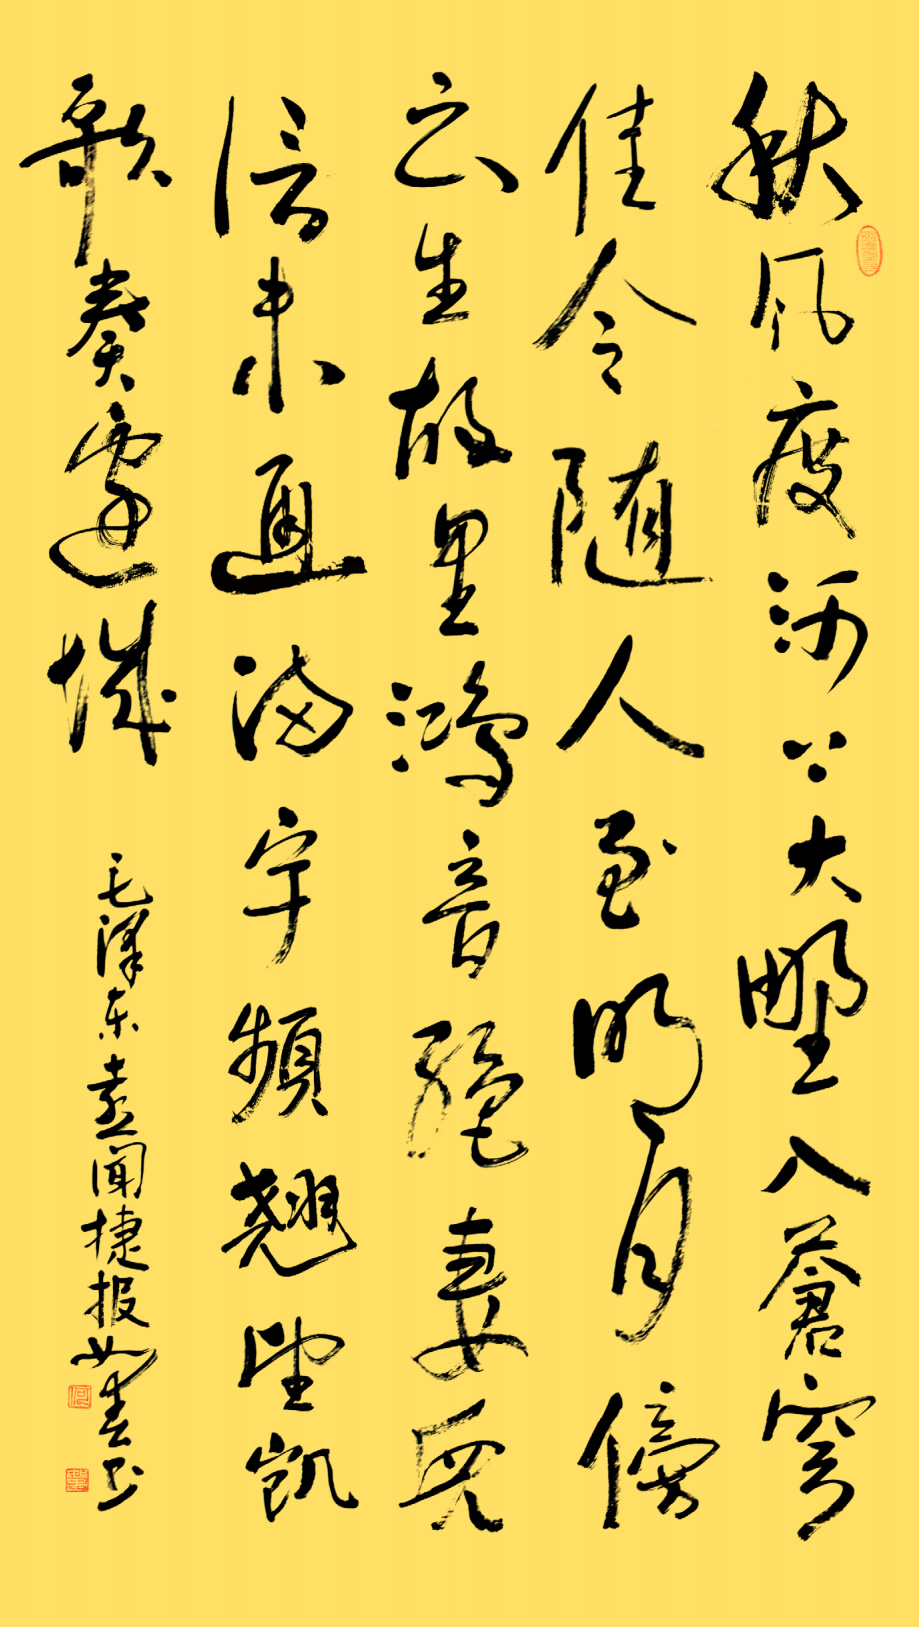 秋风度河上大野入蒼穹
佳令随人至明月傍
云生故里鸿音绝妻兒
信未通满宇頻翹望凯
歌奏邊城
毛泽东喜聞捷报 书